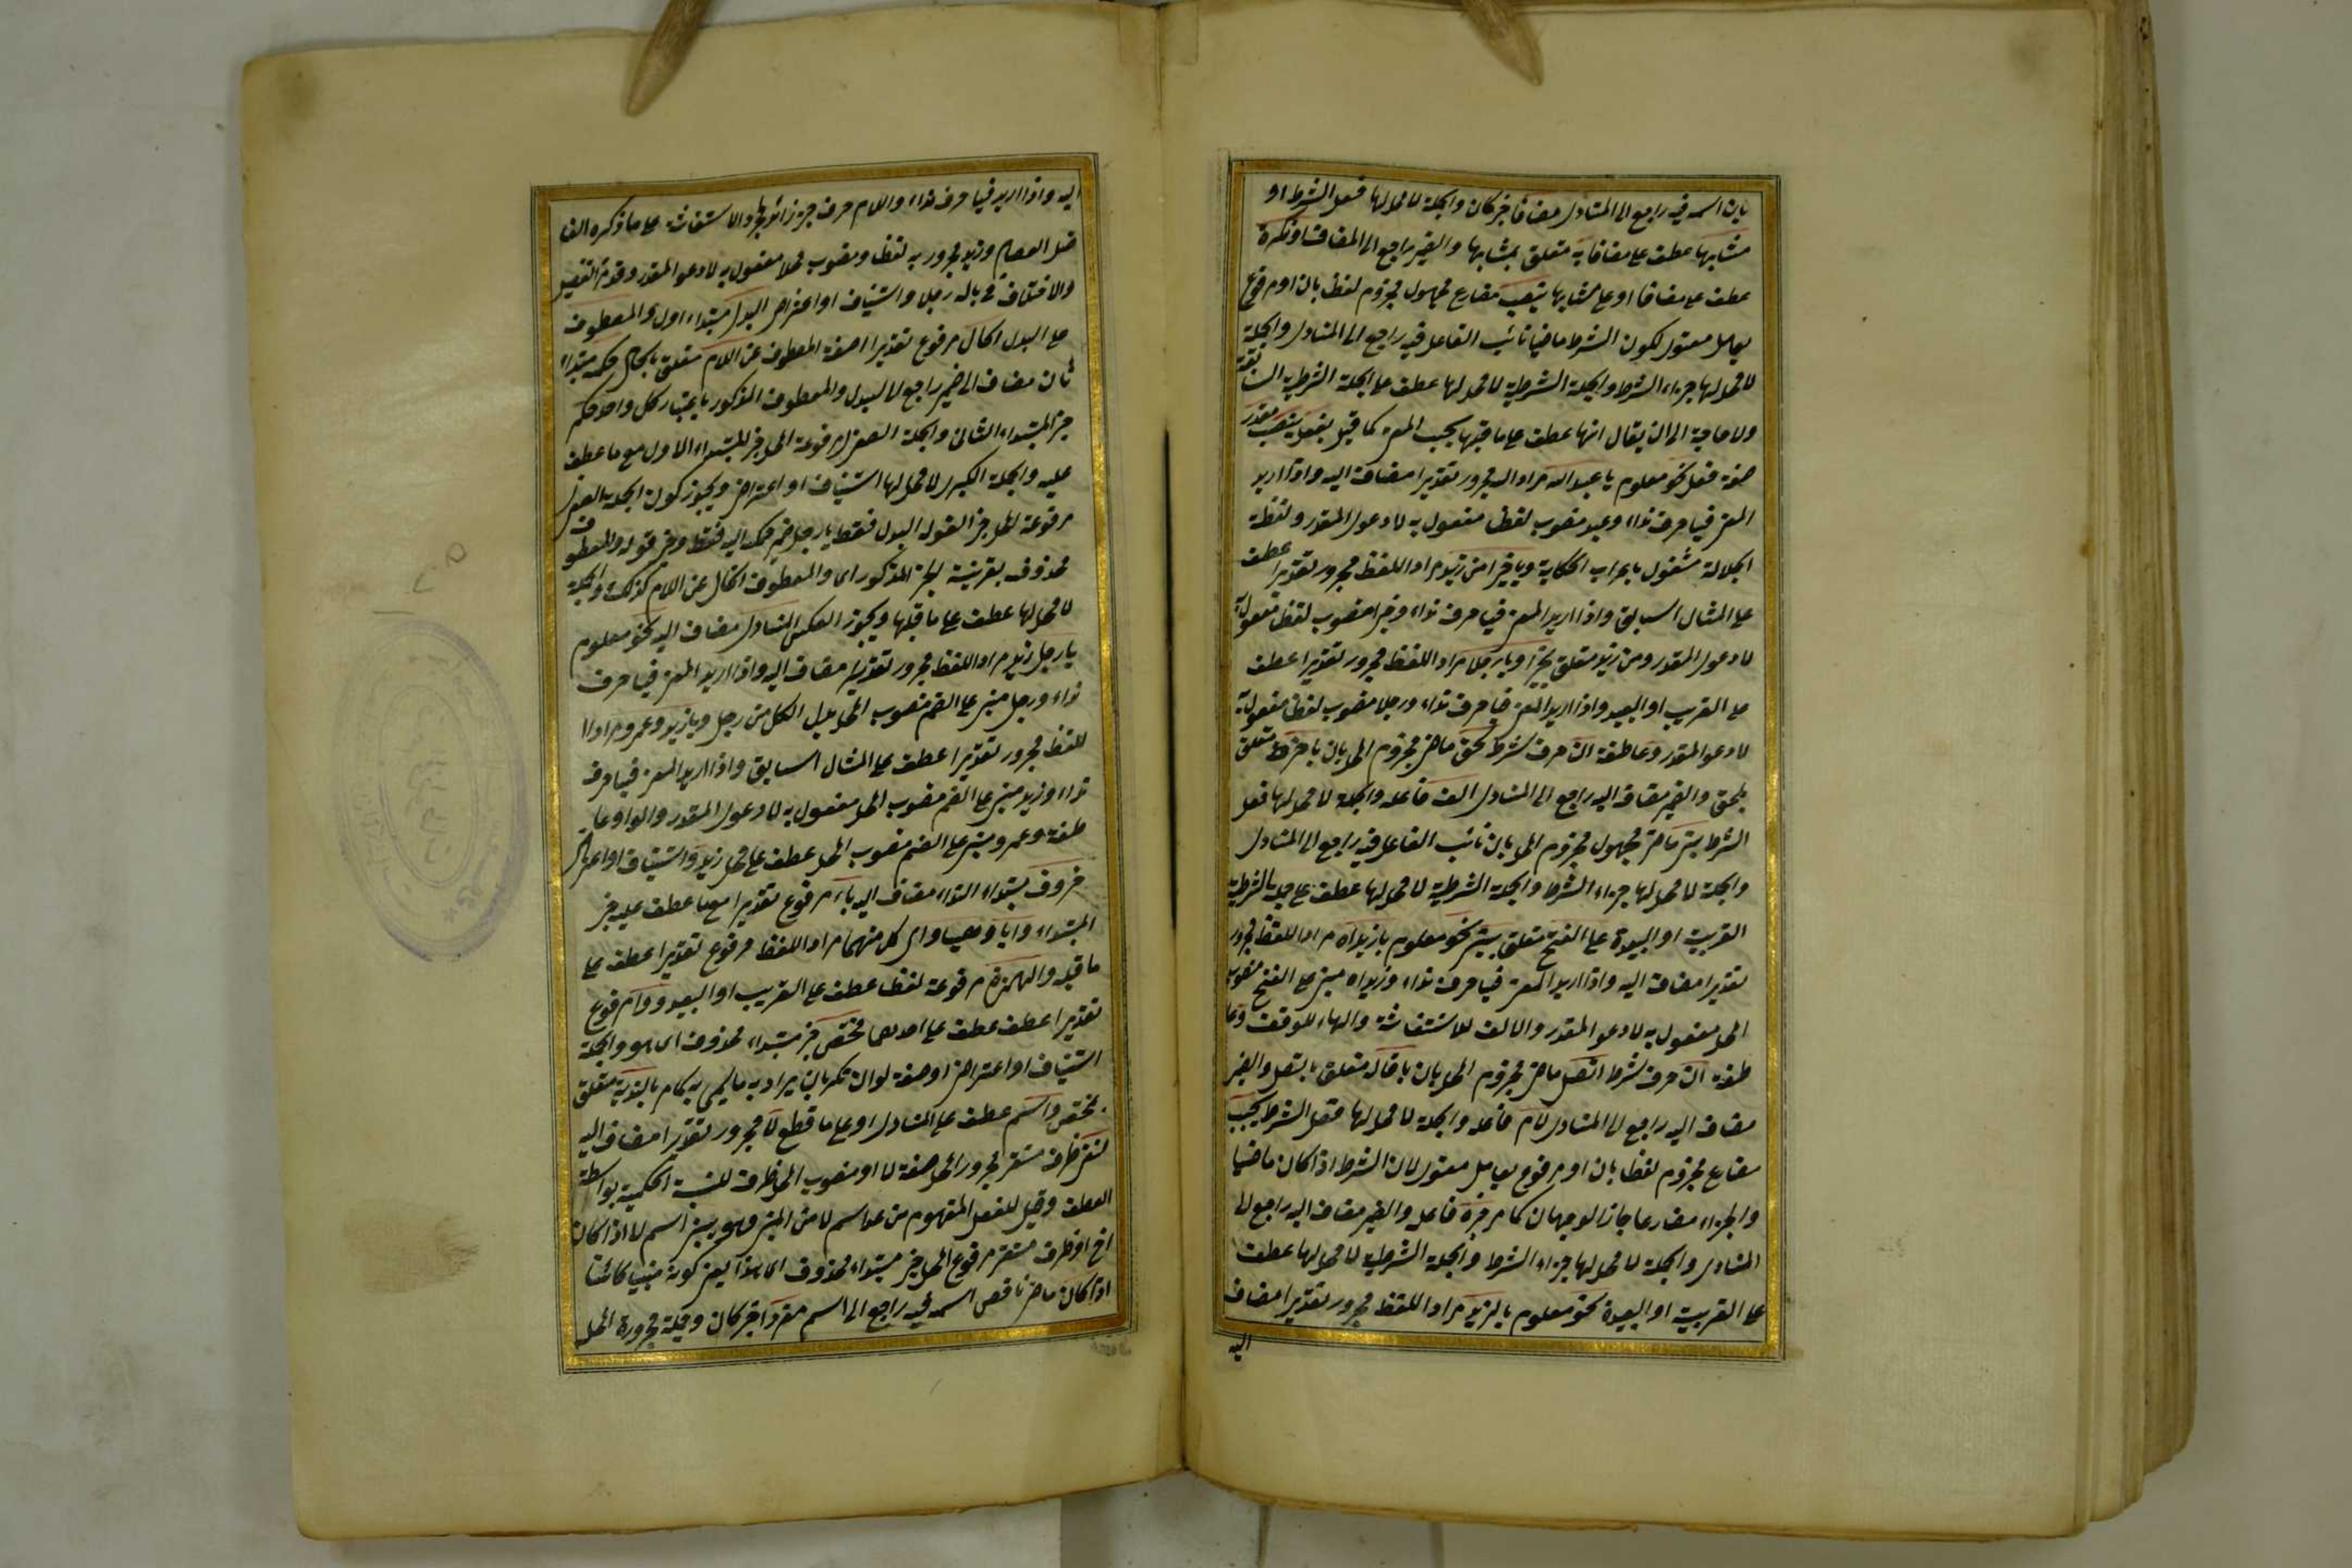 بان اسمه فيه راجع الى المنادى مضافا خبر كان والجملة لا محل لها فعل الشرط او
مشابها عطف على مضافا به متعلق بمشابها والضمير راجع الى المضاف او نكرة
عطف على مضافا او على مشابها ينصب مضارع مجهول مجزوم لفظا بان او مرفوع
بعامل معنوى لكون الشرط ماضيا نائب الفاعل فيه راجع الى المنادى والجملة
لا محل لها جزاء الشرط والجملة الشرطية لا محل لها عطف على الجملة الشرطية السابقة
ولا حاجة الى ان يقال انها عطف على ما قبلها بحسب المعنى كما قيل بفعل ينصب مقدر
صفة فعل نحو معلوم يا عبد الله مراد اللفظ مجرور تقديرا مضاف اليه واذا اريد
المعنى فيا حرف نداء وعبد منصوب لفظا مفعول به لادعو المقدر ولفظة
الجلالة مشغول باعراب الحكاية ويا خيرا من زيد مراد اللفظ مجرور تقديرا عطف
على المثال السابق واذا اريد المعنى فيا حرف نداء وخيرا منصوب لفظا مفعول به
لادعو المقدر ومن زيد متعلق بخيرا ويا رجلا مراد اللفظ مجرور تقديرا عطف
على القريب او البعيد واذا اريد المعنى فيا حرف نداء ورجلا منصوب لفظا مفعول به
لادعو المقدر وعاطفة ان حرف شرط لحق ماض مجزوم المحل بان باخره متعلق
بلحق والضمير مضاف اليه راجع الى المنادى الف فاعله والجملة لا محل لها فعل
الشرط بنى ماض مجهول مجزوم المحل بان نائب الفاعل فيه راجع الى المنادى
والجملة لا محل لها جزاء الشرط والجملة الشرطية لا محل لها عطف على جملة الشرطية
القريبة او البعيدة على الفتح متعلق ببنى نحو معلوم يا زيداه مراد اللفظ مجرور
تقديرا مضاف اليه واذا اريد المعنى فيا حرف نداء وزيداه مبنى على الفتح منصوب
المحل مفعول به لادعو المقدر والالف للاستغاثة والهاء للوقف وعا
طفة ان حرف شرط اتصل ماض مجزوم المحل بان باوله متعلق باتصل والضمير
مضاف اليه راجع الى المنادى لام فاعله والجملة لا محل لها فعل الشرط يجب
مضارع مجزوم لفظا بان او مرفوع بعامل معنوى لان الشرط اذا كان ماضيا
والجزاء مضارعا جاز الوجهان كما مر جره فاعله والضمير مضاف اليه راجع الى
المنادى والجملة لا محل لها جزاء الشرط والجملة الشرطية لا محل لها عطف
على القريبة او البعيدة نحو معلوم يا لزيد مراد اللفظ مجرور تقديرا مضاف
اليه
اليه واذا اريد فيا حرف نداء واللام حرف جر زائد والاستغاثة على ما ذكره الفا
ضل العصام وزيد مجرور به لفظا ومنصوب محلا مفعول به لادعو المقدر التفصيل
والاختلاف فى بالله رجلا واستيناف او اعتراض البدل مبتداء اول والمعطوف
على البدل الخالى مرفوع تقديرا صفة المعطوف عن اللام متعلق بالخالى حكمه مبتداء
ثان مضاف الى ضمير راجع الى البدل والمعطوف المذكور باعتبار كل واحد حكم
خبر المبتداء الثانى والجملة الصغرى مرفوعة المحل خبر للمبتداء الاول مع ما عطف
عليه والجملة الكبرى لا محل لها استيناف او اعتراض ويجوز كون الجملة الصغرى
مرفوعة المحل خبرا لقوله البدل فقط وخبر قوله والمعطوف
محذوف بقرينية الخبر المذكور اى والمعطوف الخالى عن اللام كذلك والجملة
لا محل لها عطف على ما قبلها ويجوز العكس المنادى مضاف اليه نحو معلوم
يا رجل زيد مراد اللفظ مجرور تقديرا مضاف اليه واذا اريد المعنى فيا حرف
نداء ورجل مبنى على الضم منصوب المحل بدل الكل من رجل ويا زيد وعمرو مراد ا
للفظ مجرور تقديرا عطف على المثال السابق واذا اريد المعنى فيا حرف
نداء وزيد مبنى على الضم منصوب المحل مفعول به لادعو المقدر والواو عا
طفة وعمرو مبنى على الضم منصوب المحل عطف على محل زيد واستيناف او اعتراض
حروف مبتداء النداء مضاف اليه يا مرفوع تقديرا مع ما عطف عليه خبر
المبتداء وايا وهيا واى كل منهما مراد اللفظ مرفوع تقديرا عطف على
ما قبله والهمزة مرفوعة لفظا عطف على القريب او البعيد ووا مرفوع
تقديرا عطف عطف على احدهما مختص خبر مبتداء محذوف اى هو والجملة
استيناف او اعتراض او صفة لوا بالندبة متعلق
بمختص واسم عطف على المنادى او على ما قطع لا مجرور تقديرا مضاف اليه
لنفى ظرف مستقر مجرور المحل صفة لا او منصوب المحل ظرف للنسبة الحكمية بواسطة
العطف وقيل للفعل المفهوم من عد اسم لا من المبنى اسم لا اذا كان
اخ او ظرف مستقر مرفوع المحل خبر مبتداء محذوف اى هذا يعنى كونه مبنيا كائنا
اذا كان ماض ناقص اسمه فيه راجع الى اسم مفردا خبر كان مجرورة المحل